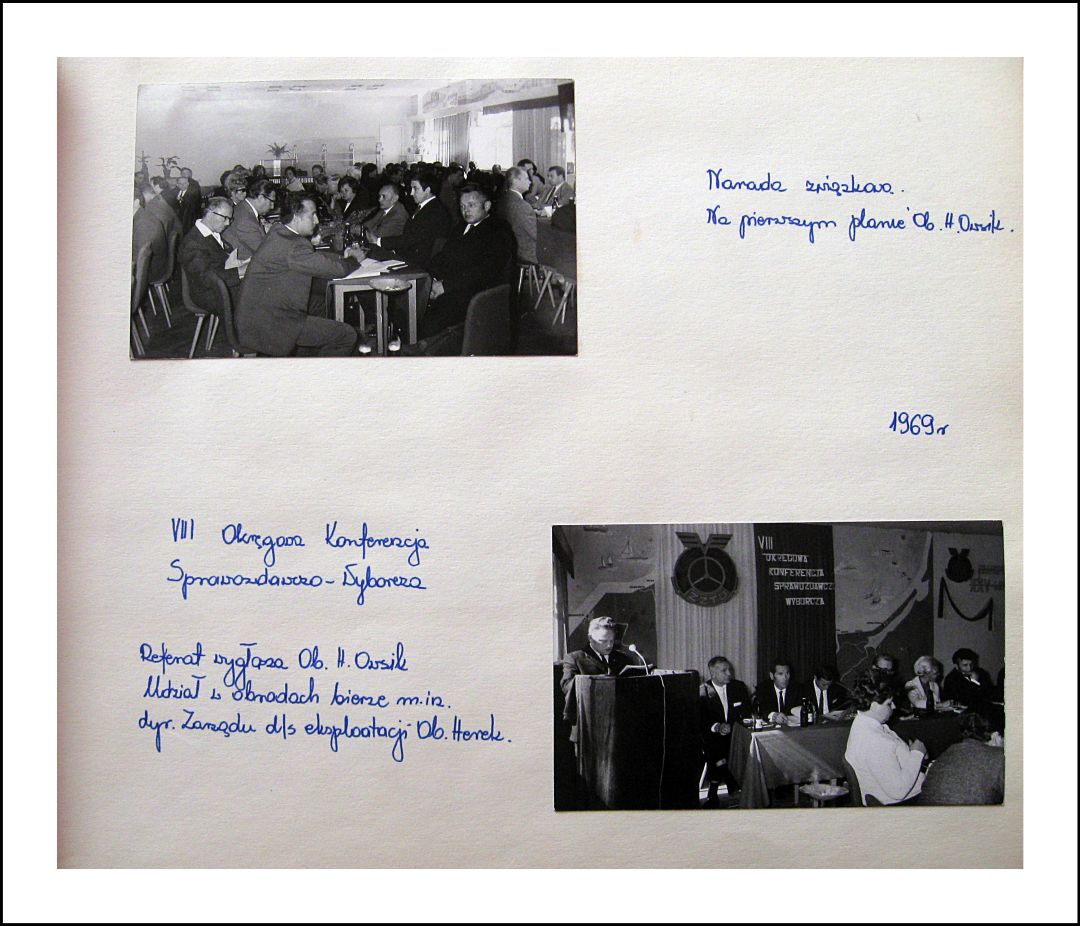 Narada związkowa.
Na pierwszym planie Ob. H. Owsik.
1969r
VIII Okręgowa Konferencja
Sprawozdawczo-Wyborcza
Referat wygłasza Ob. H. Owsik
Udział w obradach bierze m.in.
dyr. Zarządu d/s eksploatacji Ob. Herek.
VIII
OKRĘGOWA
KONFERENCJA
SPRAWOZDAWCZO
WYBORCZA